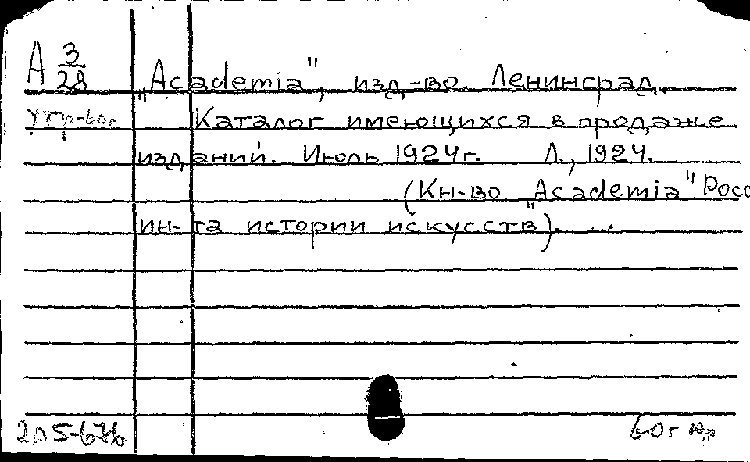 А 3/28 "Academia", изд-во. Ленинград.
Каталог имеющихся в продаже
изданий. Июль 1924г. Л., 1924.
(Кн-во "Academia" Росс
ин-та истории искусств).